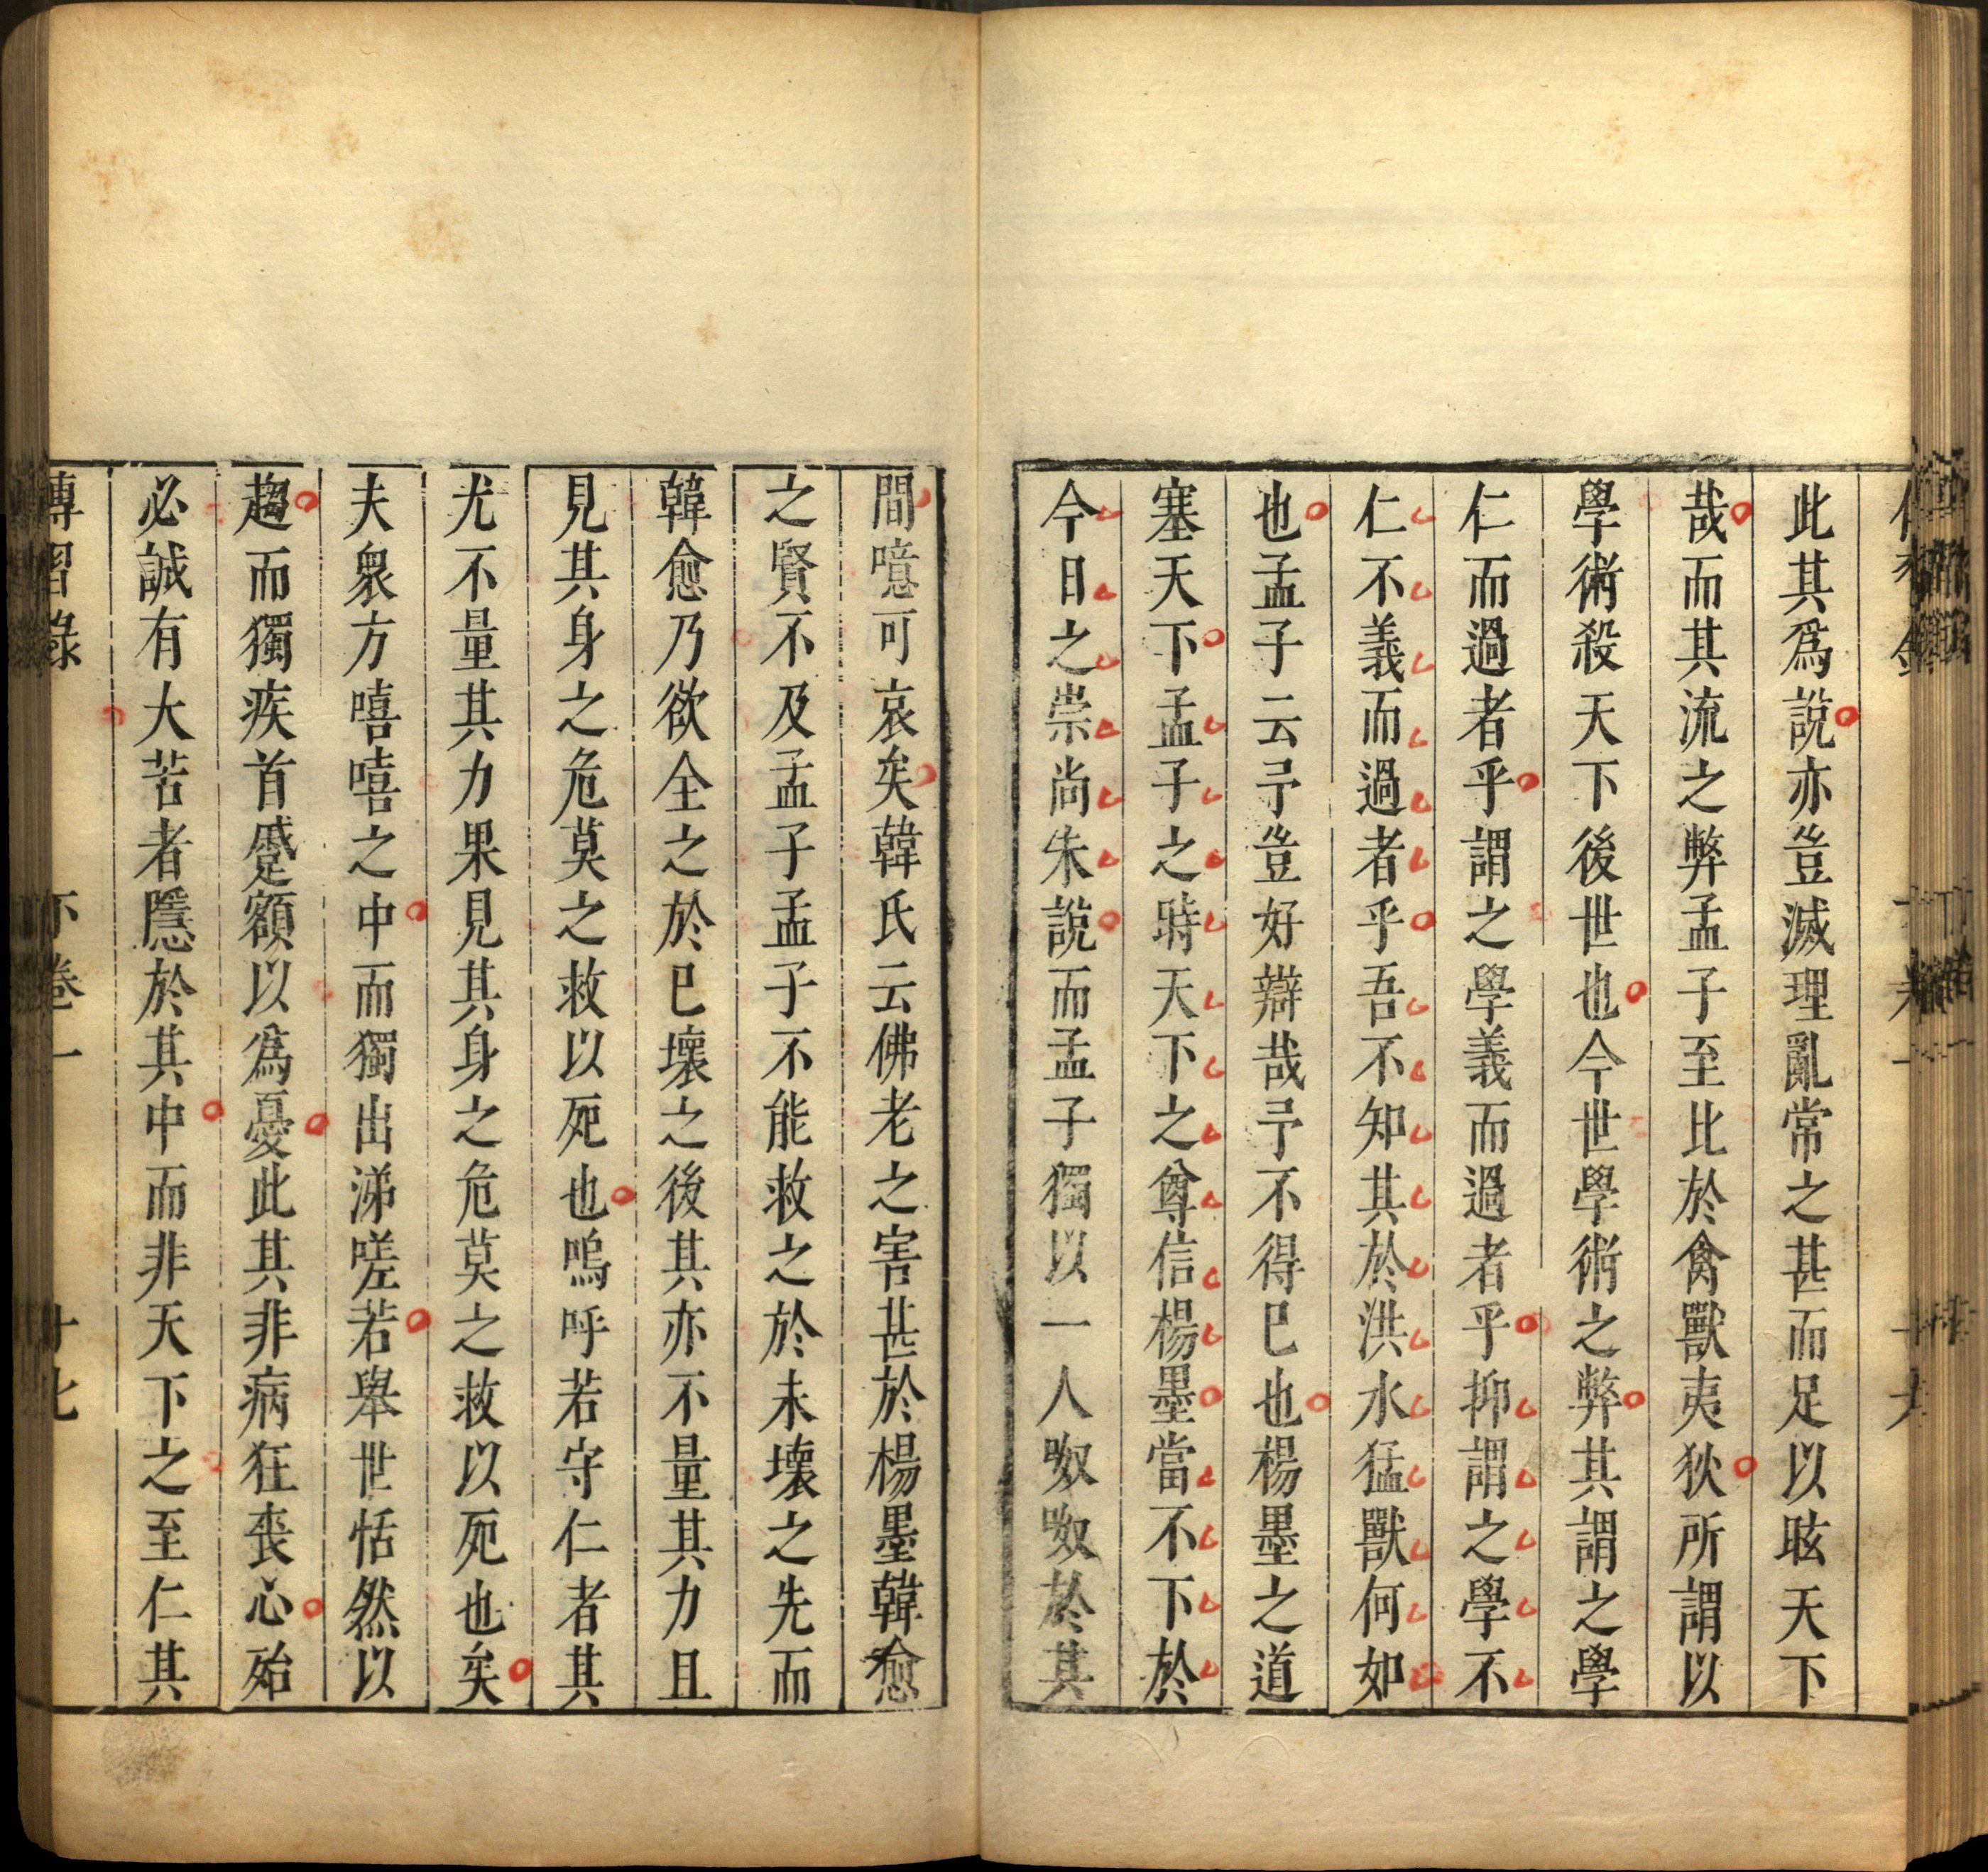 此其爲說亦豈滅理亂常之甚而足以眩天下
哉而其流之弊孟子至比於禽獸夷狄所謂以
學術殺天下後世也今世學術之弊其謂之學
仁而過者乎謂之學義而過者乎抑謂之學不
仁不義而過者乎吾不知其於洪水猛獸何如
也孟子云予豈好辯哉予不得已也楊墨之道
塞天下孟子之時天下之尊信楊墨當不下於
今日之崇尚朱說而孟子獨以一人呶呶於其
間噫可哀矣韓氏云佛老之害甚於楊墨韓愈
之賢不及孟子孟子不能救之於未壞之先而
韓愈乃欲全之於已壞之後其亦不量其力且
見其身之危莫之救以死也嗚呼若守仁者其
尤不量其力果見其身之危莫之救以死也矣
夫衆方嘻嘻之中而獨出涕嗟若舉世恬然以
趨而獨疾首蹙額以爲憂此其非病狂喪心殆
必誠有大苦者隱於其中而非天下之至仁其
傳習錄 下卷一